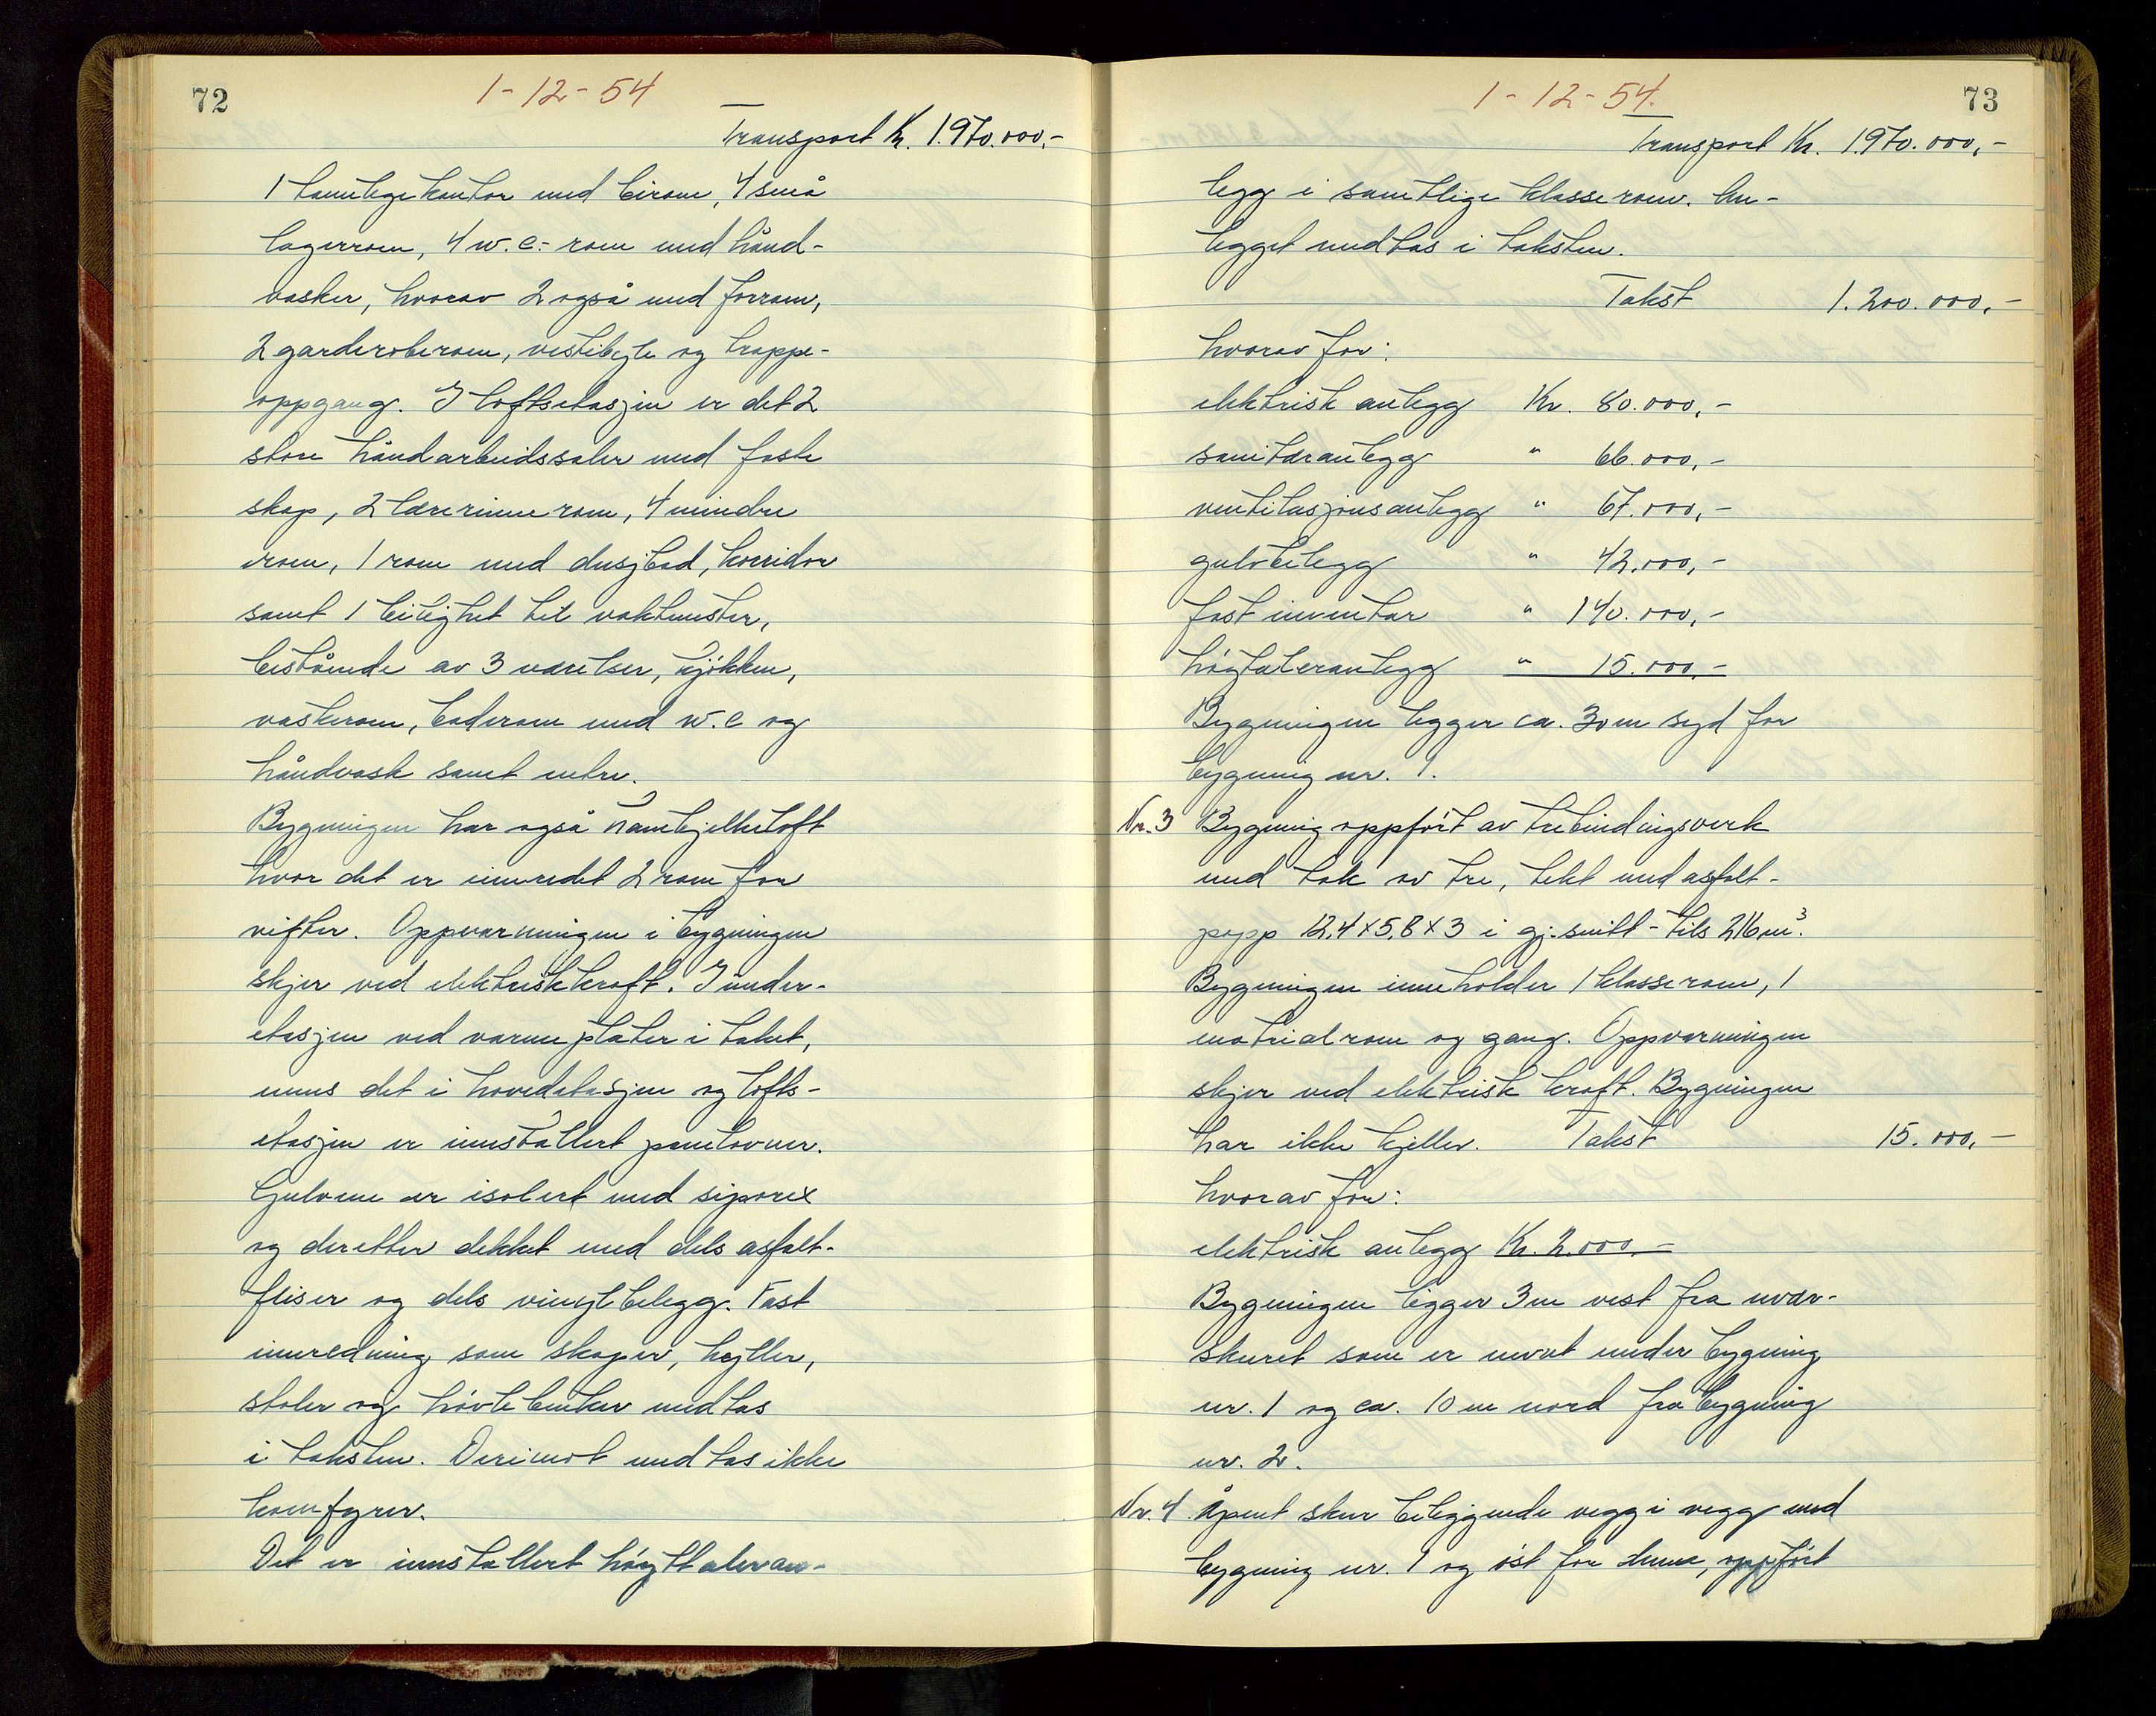 72
1-12-54
Transport Kr. 1.970.000,-
1 tannlegekontor med birom, 4 små
lagerrom, 4 w.c.-rom med hånd-
vasker, hvorav 2 også med forrom,
2 garderoberom, vestibyle og trappe-
oppgang. I loftsetasjen er det 2
store håndarbeidssaler med faste
skap, 2 lærerinnerom, 4 mindre
rom, 1 rom med dusjbad, korridor
samt 1 leilighet til vaktmester,
bestående av 3 værelser, kjøkken,
vaskerom, baderom med w.c og
håndvask samt entre.
Bygningen har også hanebjelkeloft
hvor det er innredet 2 rom for
vifter. Oppvarmingen i bygningen
skjer ved elektrisk kraft. I under-
etasjen ved varmeplater i taket,
mens det i hovedetasjen og lofts-
etasjen er innstallert panelovner.
Gulvene er isolert med siporex
og deretter dekket med dels asfalt-
fliser og dels vinylbelegg. Fast
innredning som skaper, hyller,
stoler og høvlebenker medtas
i taksten. Derimot medtas ikke
komfyrer.
Det er innstallert høyttaleran-
73
1-12-54.
Transport Kr. 1970.000,-
legg i samtlige klasserom. An-
legget medtas i taksten.
Takst 1.200.000,-
hvorav for:
elektrisk anlegg Kr. 80.000,-
sanitæranlegg " 66.000,-
ventilasjonsanlegg " 67.000,-
gulvbelegg " 42.000,-
fast inventar " 140.000,-
høgtaleranlegg " 15.000,-
Bygningen ligger ca. 30 m syd for
bygning nr. 1.
Nr. 3 Bygning oppført av trebindingsverk
med tak av tre, tekt med asfalt-
papp 12,4 x 5,8 x 3 i gj.snitt - tils 216 m³.
Bygningen inneholder 1 klasserom, 1
matrialrom og gang. Oppvarmingen
skjer ved elektrisk kraft. Bygningen
har ikke kjeller. Takst 15.000,-
hvorav for:
elektrisk anlegg Kr. 2.000,-
Bygningen ligger 3 m vest fra
skuret som er nevnt under bygning
nr. 1 og ca. 10 m nord fra bygning
nr. 2.
Nr. 4 Åpent skur beliggende vegg i vegg med
bygning nr. 1 og øst for denne, oppført